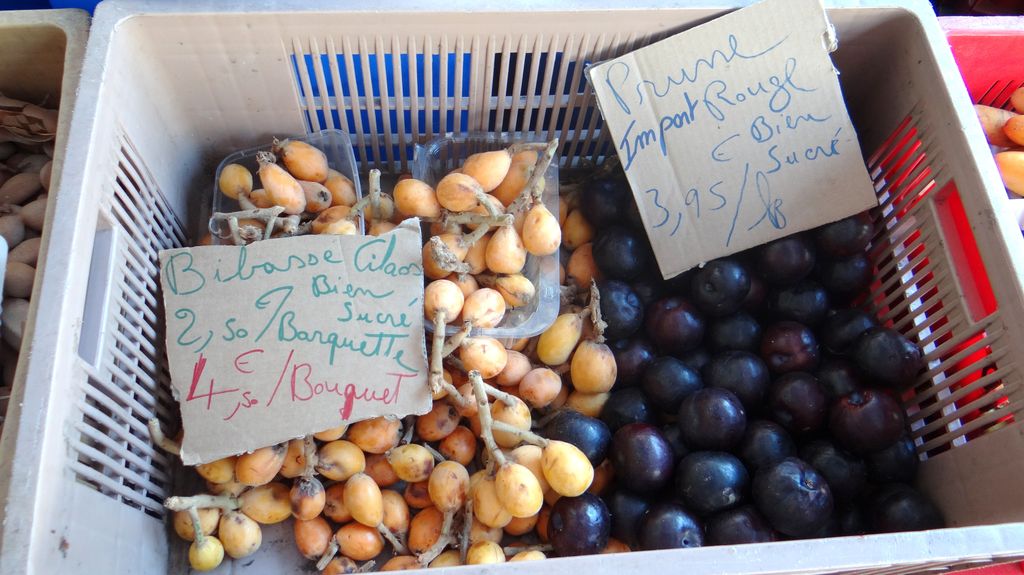 Bibasse Cilaos
Bien
Sucré
2,50 €/Barquette
€
4,50/Bouquet
Prune
Import Rouge
€ Bien
Sucré
3,95/